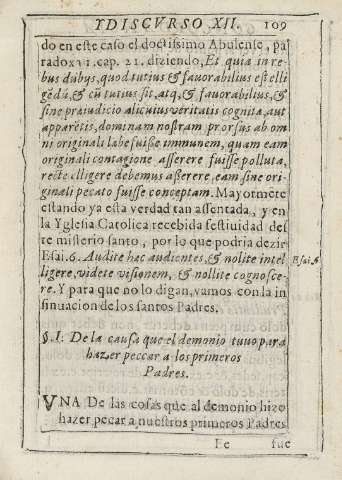 YDISCVRSO XII. 109
do en este caso el doctissimo Abulense, pa
radox 31. cap. 21. diziendo, Et quia in re
bus dubys, quod tutius & fauorabilius est elli
gẽdũ, & cũ tutius sit, atq, & fauorabilius, &
sine præiudicio alicuius veritatis cognita, aut
apparẽtis, dominam nostram prorsus ab om
ni originali labe fuisse inmunem, quam eam
originali contagione asserere fuisse polluta,
recte elligere debemus asserere, eam sine ori
ginali pecato fuisse conceptam. Mayormẽte
estando ya esta verdad tan assentada, y en
la Yglesia Catolica recebida festiuidad des
te misterio santo, por lo que podria dezir
Esai. 6. Audite hac audientes, & nolite intel Esai. 6
ligere, videte visionem, & nollite cognosce-
re. Y para que no lo digan, vamos con la in
sinuacion de los santos Padres.
§. I. De la causa que el demonio tuuo para
hazer peccar a los primeros
Padres.
VNA De las cosas que al demonio hizo
hazer pecar a nuestros primeros Padres
Ee fue